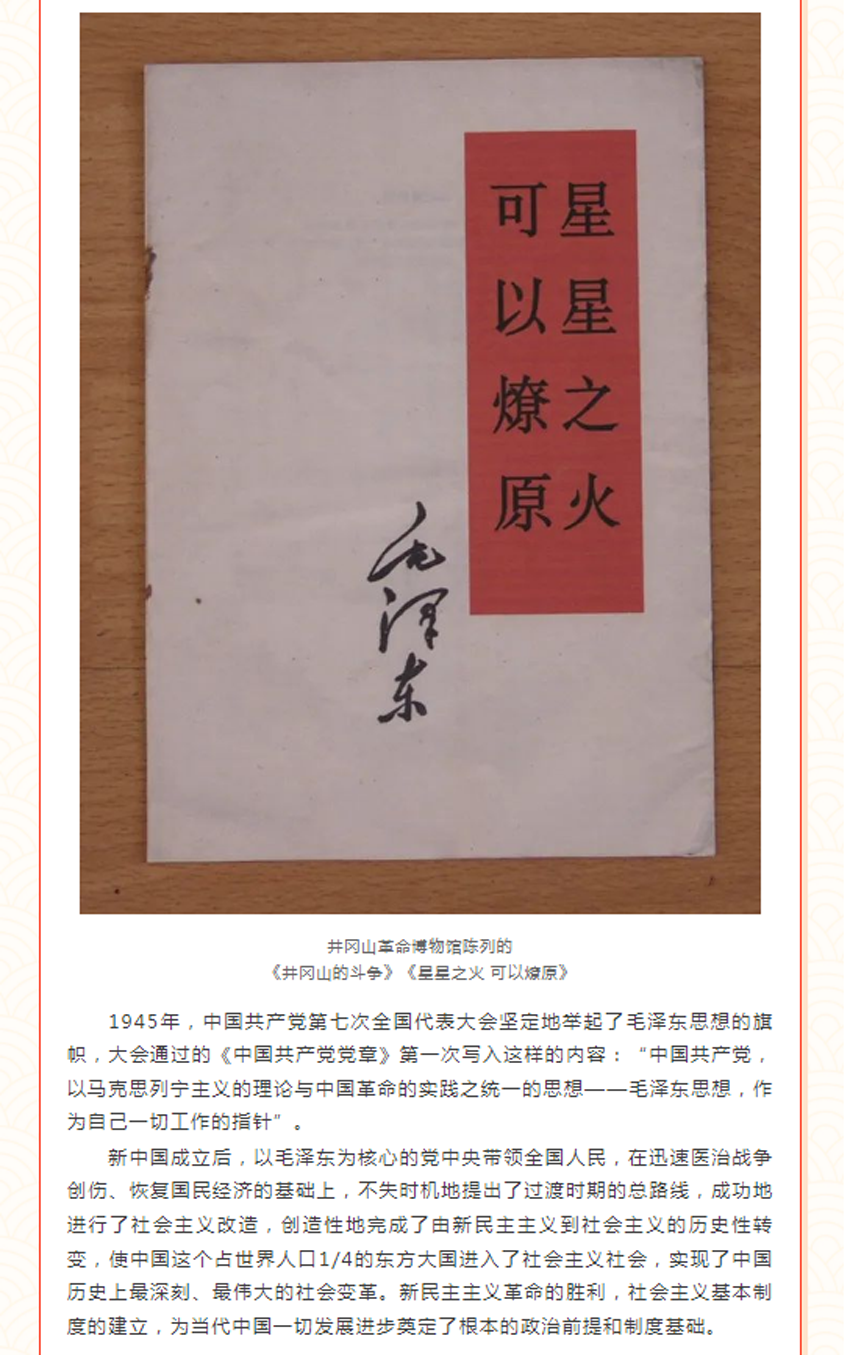 星星之火
可以燎原
毛泽东
井冈山革命博物馆陈列的
《井冈山的斗争》《星星之火 可以燎原》
1945年，中国共产党第七次全国代表大会坚定地举起了毛泽东思想的旗
帜，大会通过的《中国共产党党章》第一次写入这样的内容：“中国共产党，
以马克思列宁主义的理论与中国革命的实践之统一的思想——毛泽东思想，作
为自己一切工作的指针”。
新中国成立后，以毛泽东为核心的党中央带领全国人民，在迅速医治战争
创伤、恢复国民经济的基础上，不失时机地提出了过渡时期的总路线，成功地
进行了社会主义改造，创造性地完成了由新民主主义到社会主义的历史性转
变，使中国这个占世界人口1/4的东方大国进入了社会主义社会，实现了中国
历史上最深刻、最伟大的社会变革。新民主主义革命的胜利，社会主义基本制
度的建立，为当代中国一切发展进步奠定了根本的政治前提和制度基础。